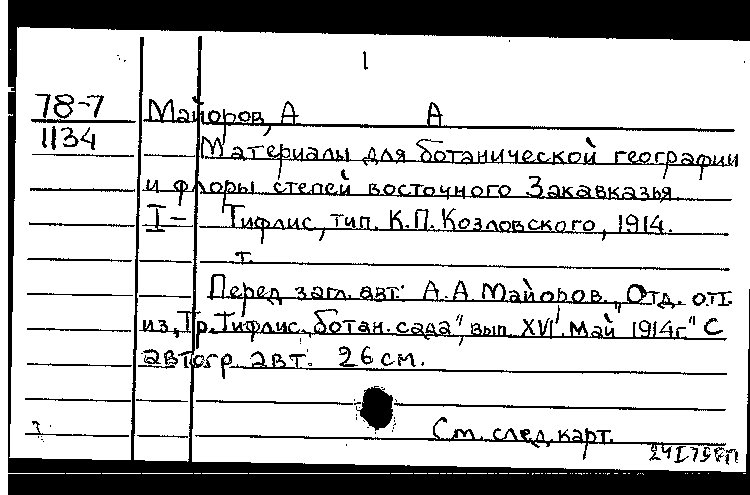 1
78-7 Майоров, А А
1134 Материалы для ботанической географии
и флоры степей восточного Закавказья.
I- Тифлис, тип. К.П. Козловского, 1914.
т.
Перед загл. авт: А.А Майоров. „Отд. отт.
из „Тр. Тифлис. ботан. сада", вып XVI. Май 1914г." С
автогр авт. 26 см.
См. след. карт.